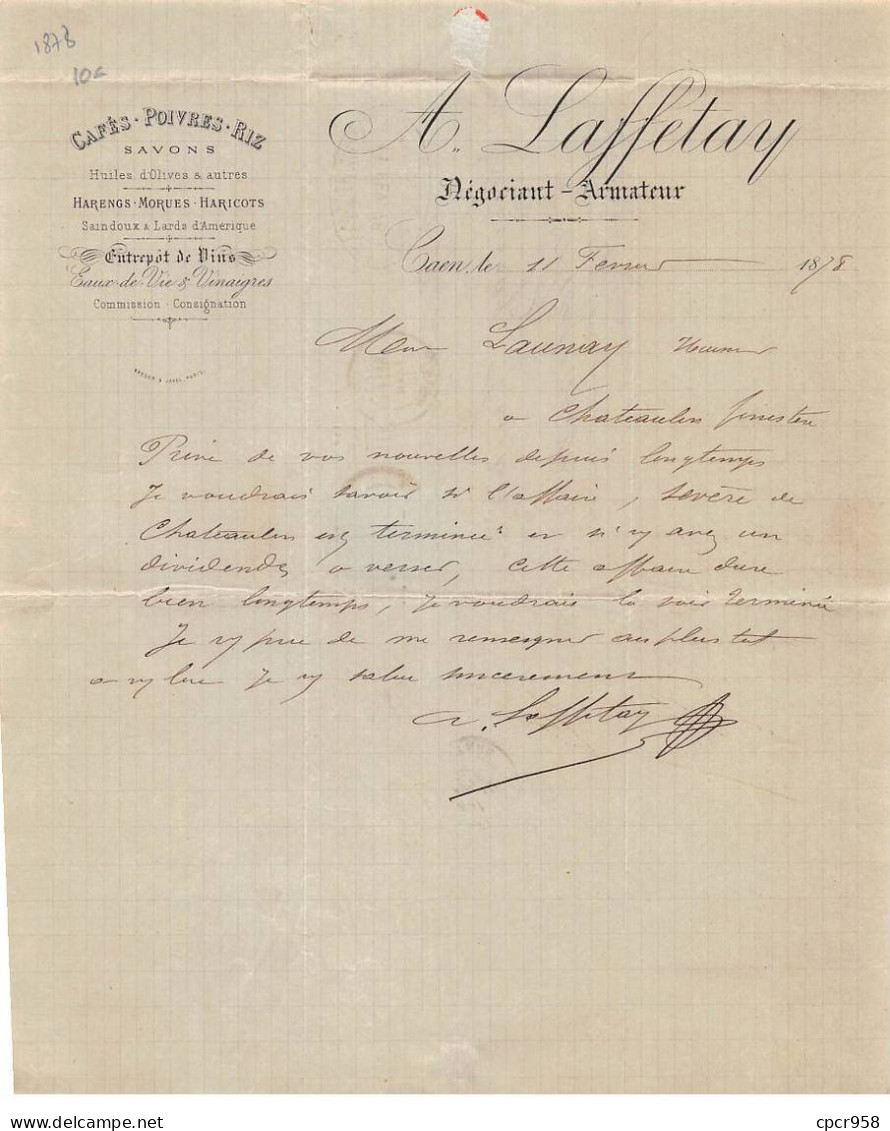 1878
10c
CAFÉS · POIVRES · RIZ
SAVONS
Huiles d'Olives & autres
HARENGS · MORUES · HARICOTS
Saindoux & Lards d'Amérique
Entrepôt de Vins
Eaux-de-Vie & Vinaigres
Commission · Consignation
A. Laffetay
Négociant - Armateur
Caen, le 11 Fevrier 1878
Launay
a Chateaulin finistere
Privé de vos nouvelles depuis longtemps
Je voudrais savoir si l'affaire, sevère de
Chateaulin est terminée et si vs avez un
dividende a verser, cette affaire dure
bien longtemps, je voudrais la voir terminée
Je vs prie de me renseigner au plus tot
a vs lire je vs salue sincerement
A. Laffetay
delcampe.net
cpcr958